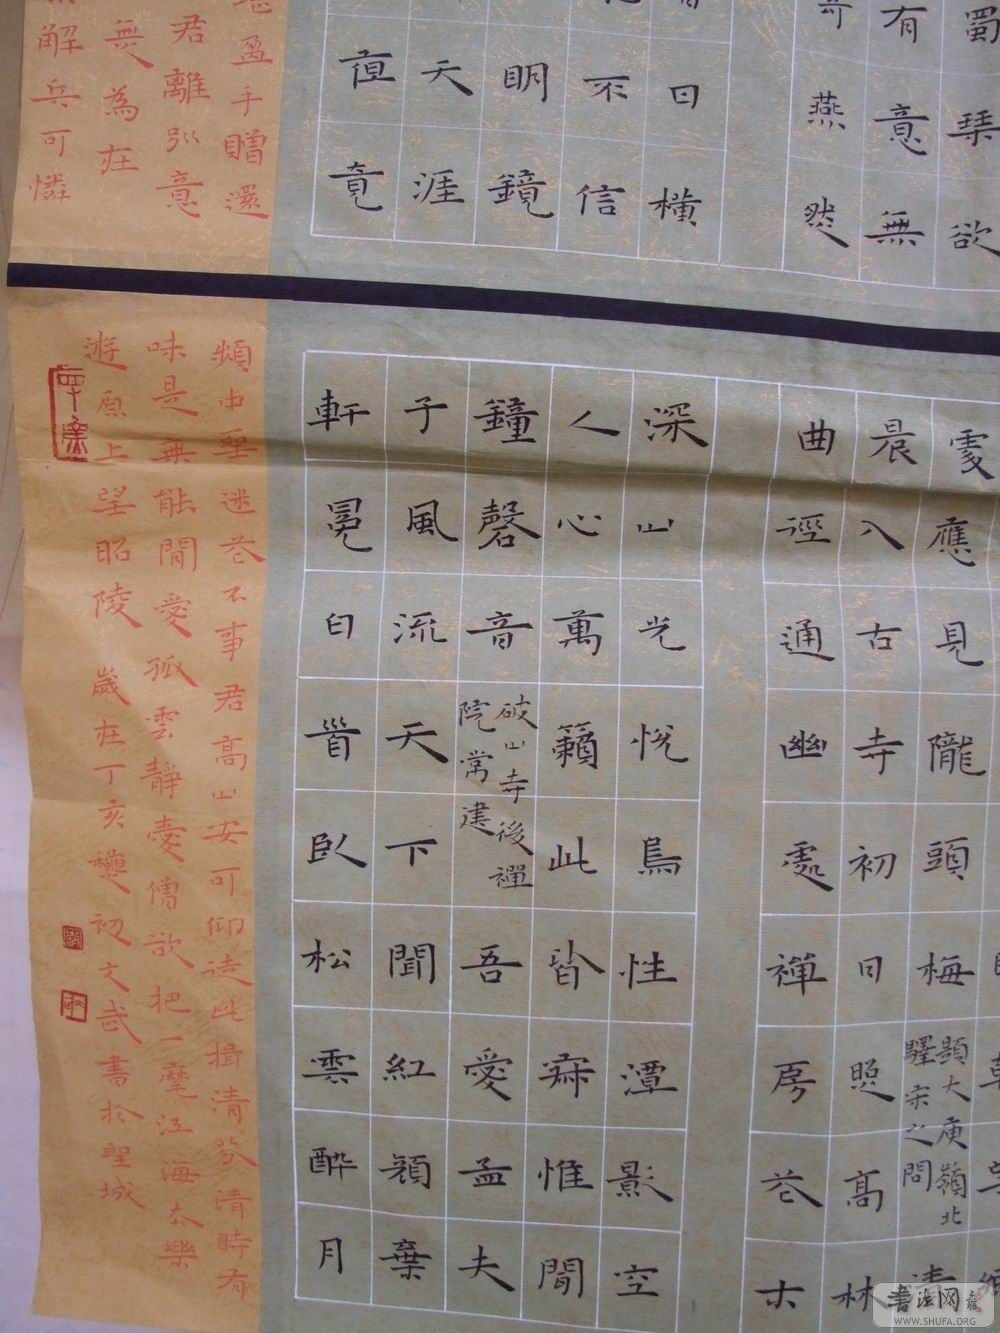 蜀琴欲
有意無
燕然
日橫
不信
明鏡
天涯
亱竟
盈手贈還
君離別意
無為在
解兵可憐
處應見隴頭梅
題大庾嶺北
驛宋之問
清
晨入古寺初日照高林
曲徑通幽處禪房花木
深山光悅鳥性潭影空
人心萬籟此皆寂惟聞
鐘磬音
破山寺後禪
院常建
吾愛孟夫
子風流天下聞紅顏棄
軒冕白首臥松雲醉月
頻中聖迷花不事君高山安可仰徒此揖清芬清時有
味是無能閒愛孤雲靜愛僧欲把一麾江海去樂
遊原上望昭陵 歲在丁亥穐初文武書於聖城
書法网
WWW.SHUFA.ORG